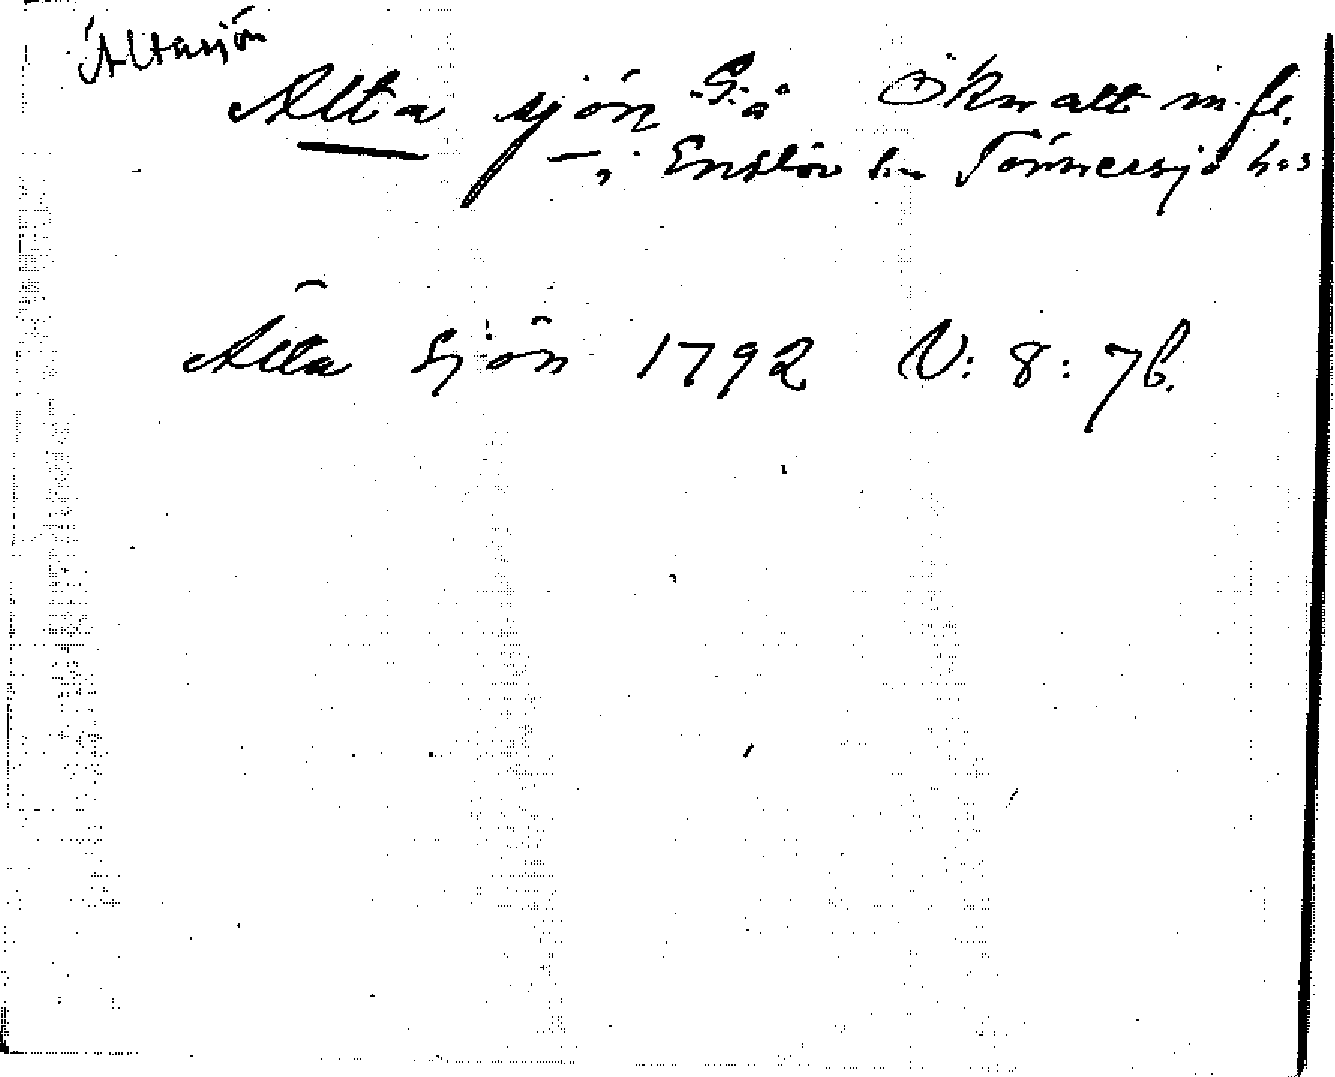 Ältasjön
Älta sjön S. a Öknalt m. fl.
— i Enslöv sn Tönnersjö hs
Älta Sjön 1792 V: 8: 76.